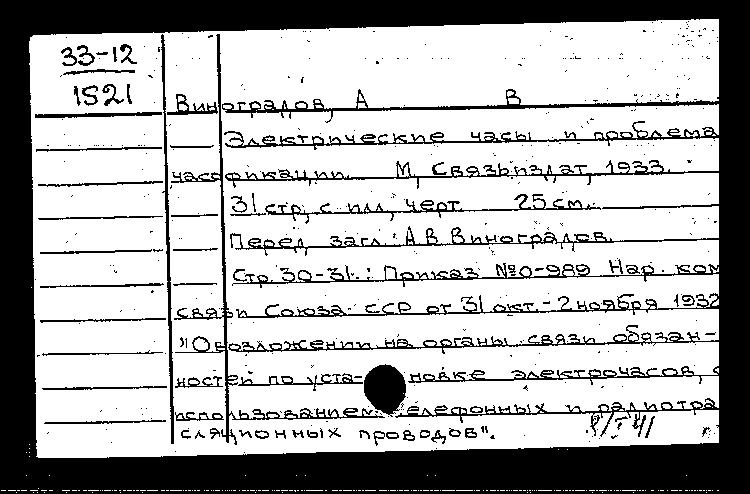 33-12
1521
Виноградов, А В
Электрические часы и проблема
часофикации. М, Связьиздат, 1933.
31 стр, с илл, черт. 25 см.
Перед загл.: А В Виноградов.
Стр. 30-31.: Приказ №0-989 Нар. ком
связи Союза ССР от 31 окт.-2 ноября 1932
"О возложении на органы связи обязан-
ностей по уста- новке электрочасов, с
использованием телефонных и радиотра
сляционных проводов".